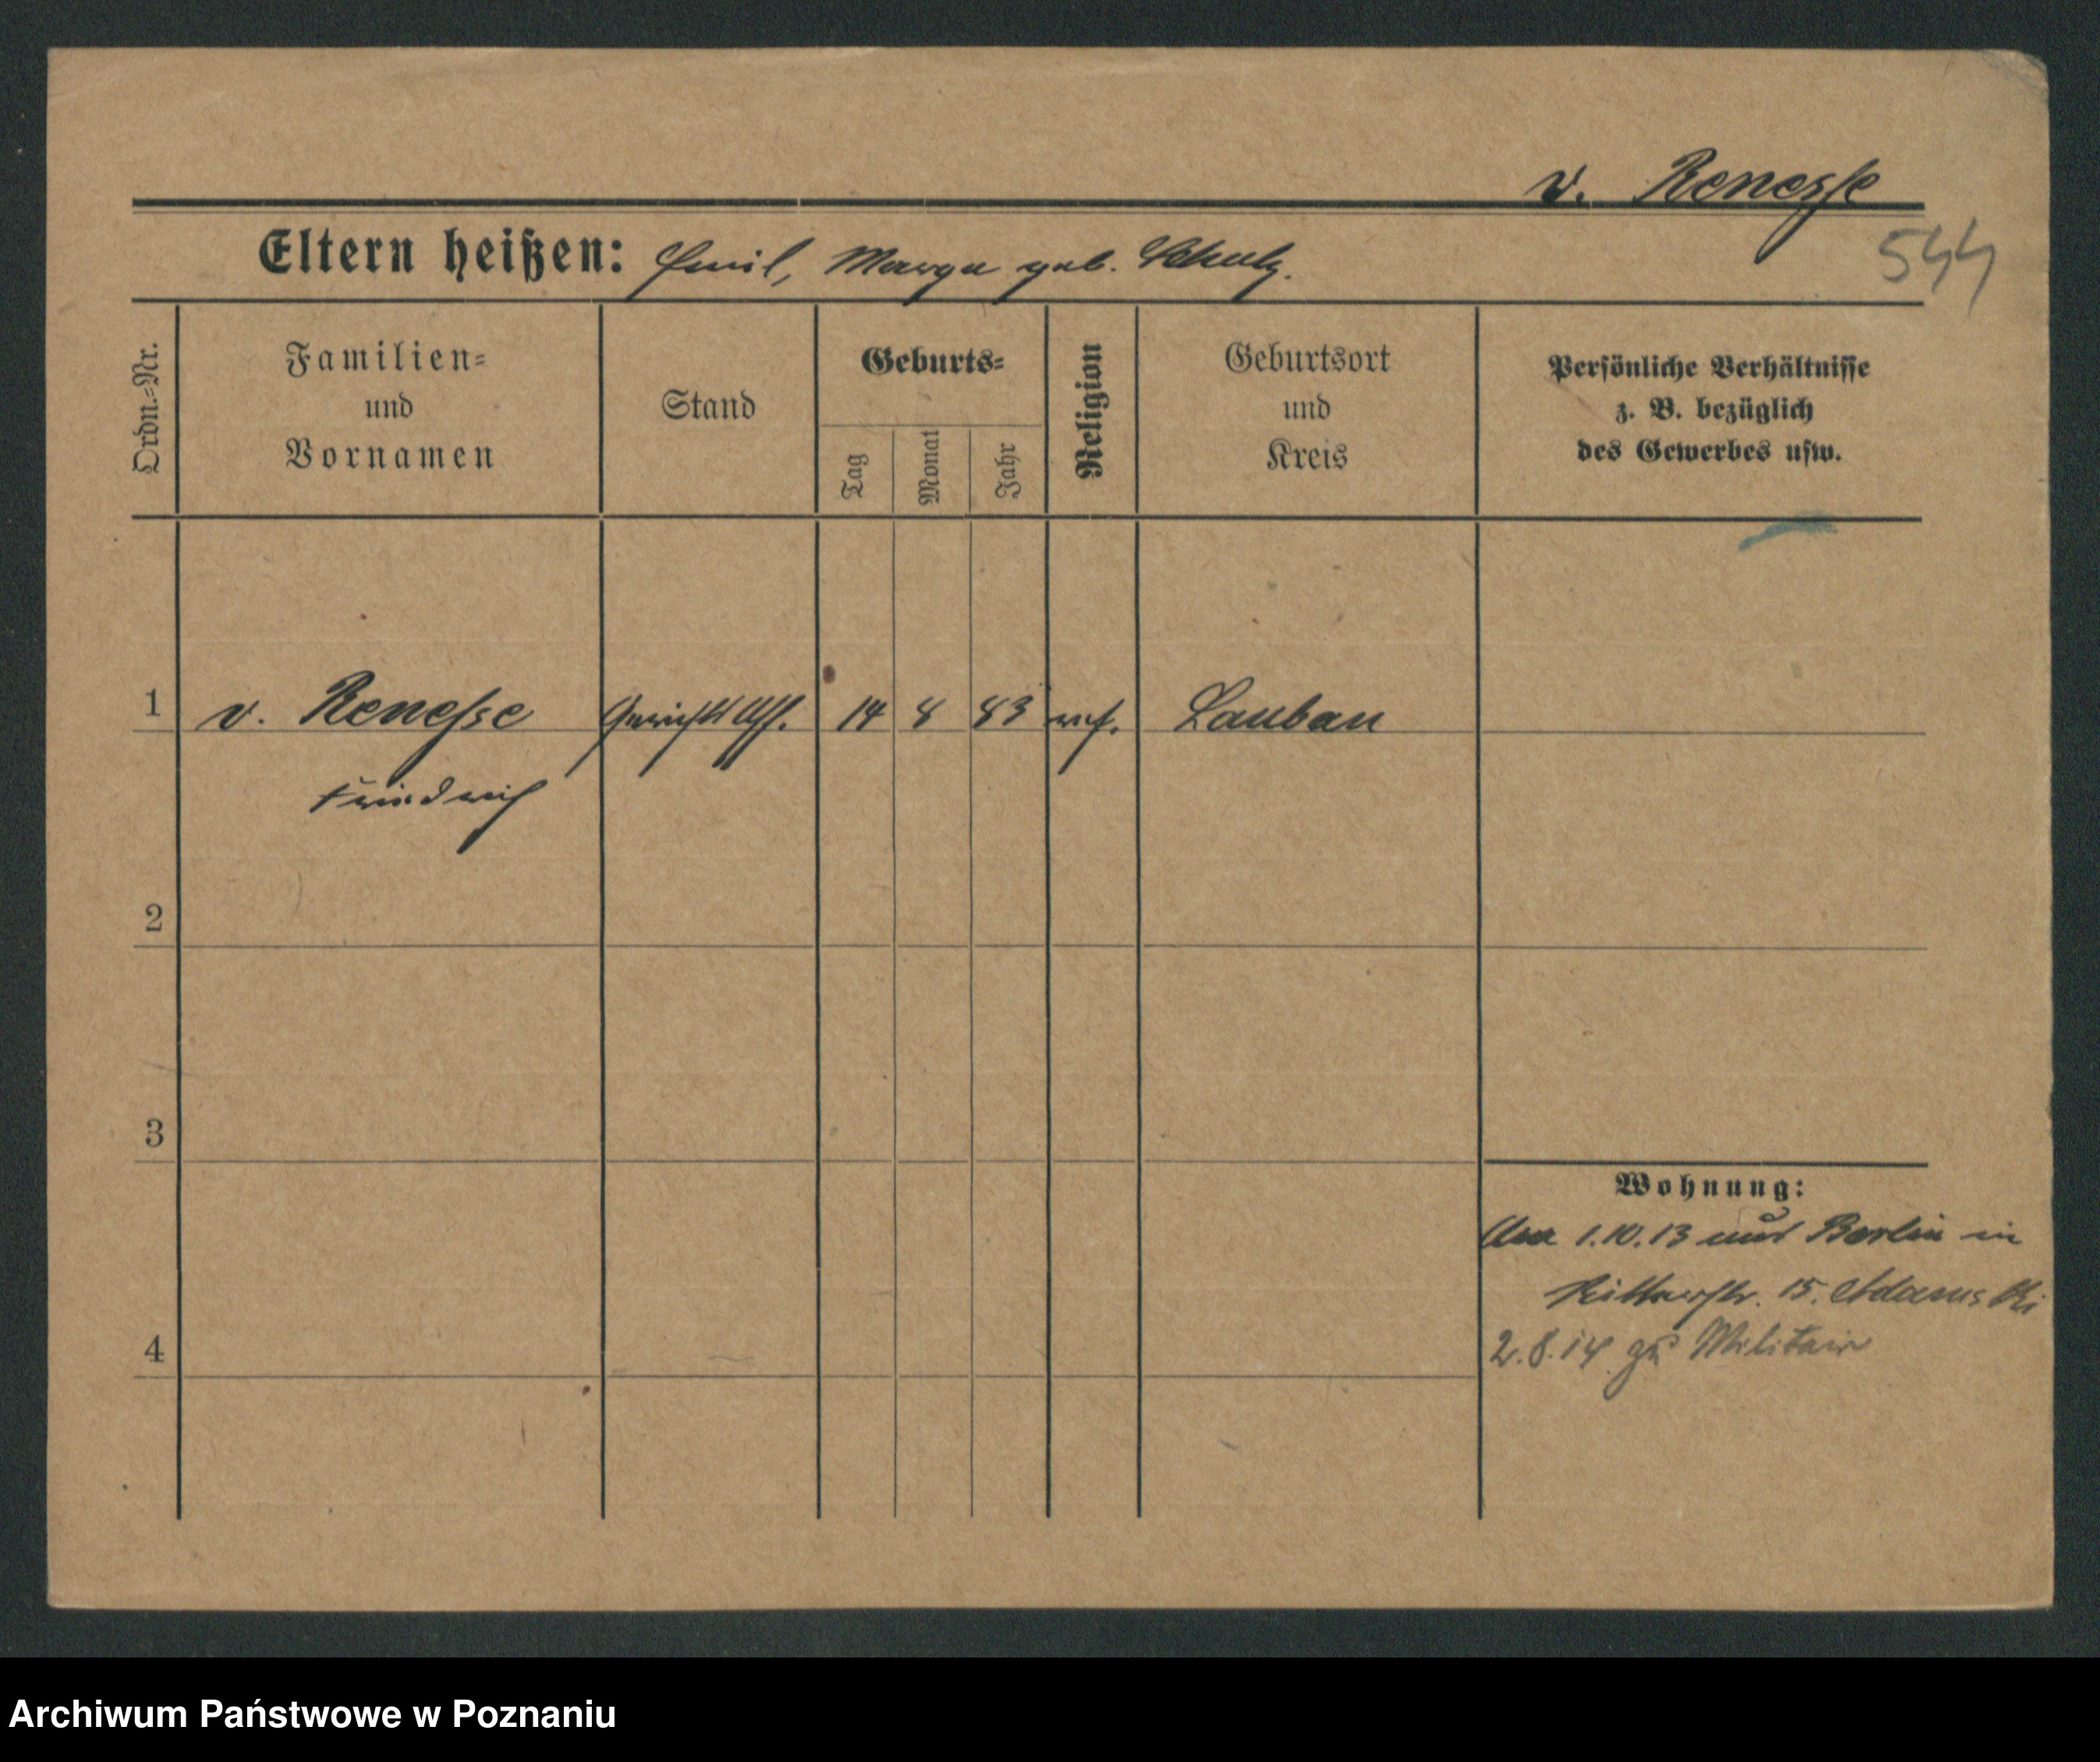 v. Renesse
544
Eltern heißen: Emil, Marga geb. Schulz.
Ordn.=Nr.
Familien=
und
Vornamen
Stand
Geburts=
Tag
Monat
Jahr
Religion
Geburtsort
und
Kreis
Persönliche Verhältnisse
z. B. bezüglich
des Gewerbes usw.
1 v. Renesse Gerichts Ass. 14 8 83 ref. Lauban
Friedrich
2
3
4
Wohnung:
1.10.13 aus Berlin in
Ritterstr. 15. Adamski
2.8.14 zu Militair
Archiwum Państwowe w Poznaniu